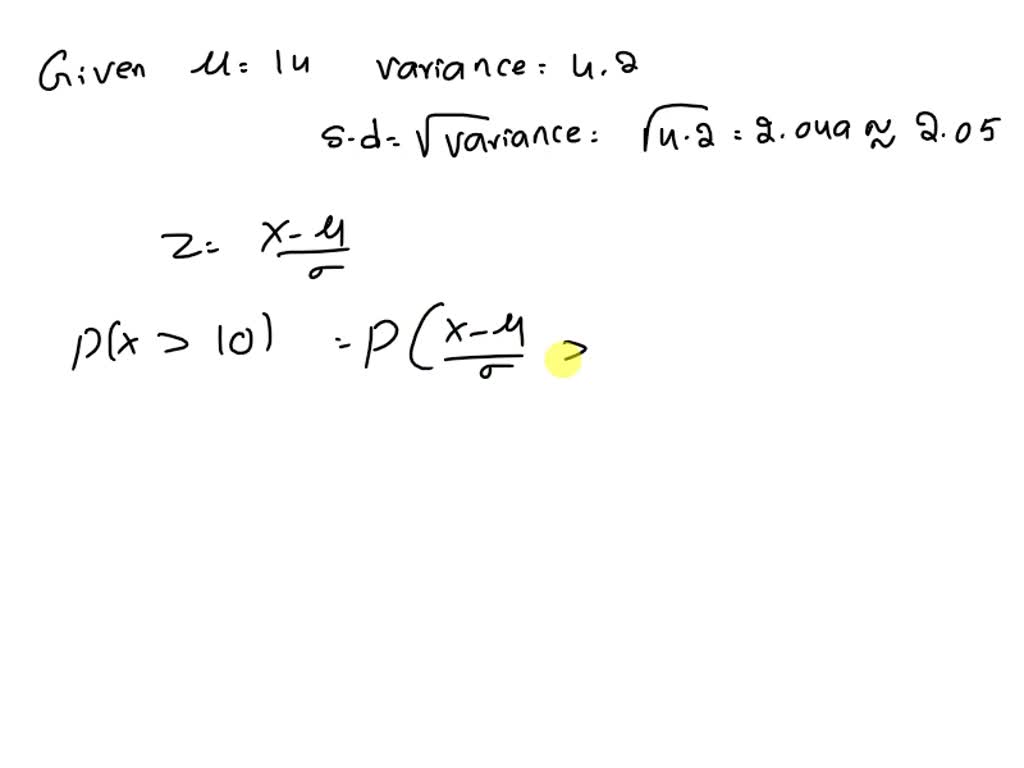 Given μ = 14 variance = 4.2
s.d = √variance = √4.2 = 2.049 ≈ 2.05
z = x-μ/σ
p(x > 10) = P(x-μ/σ >